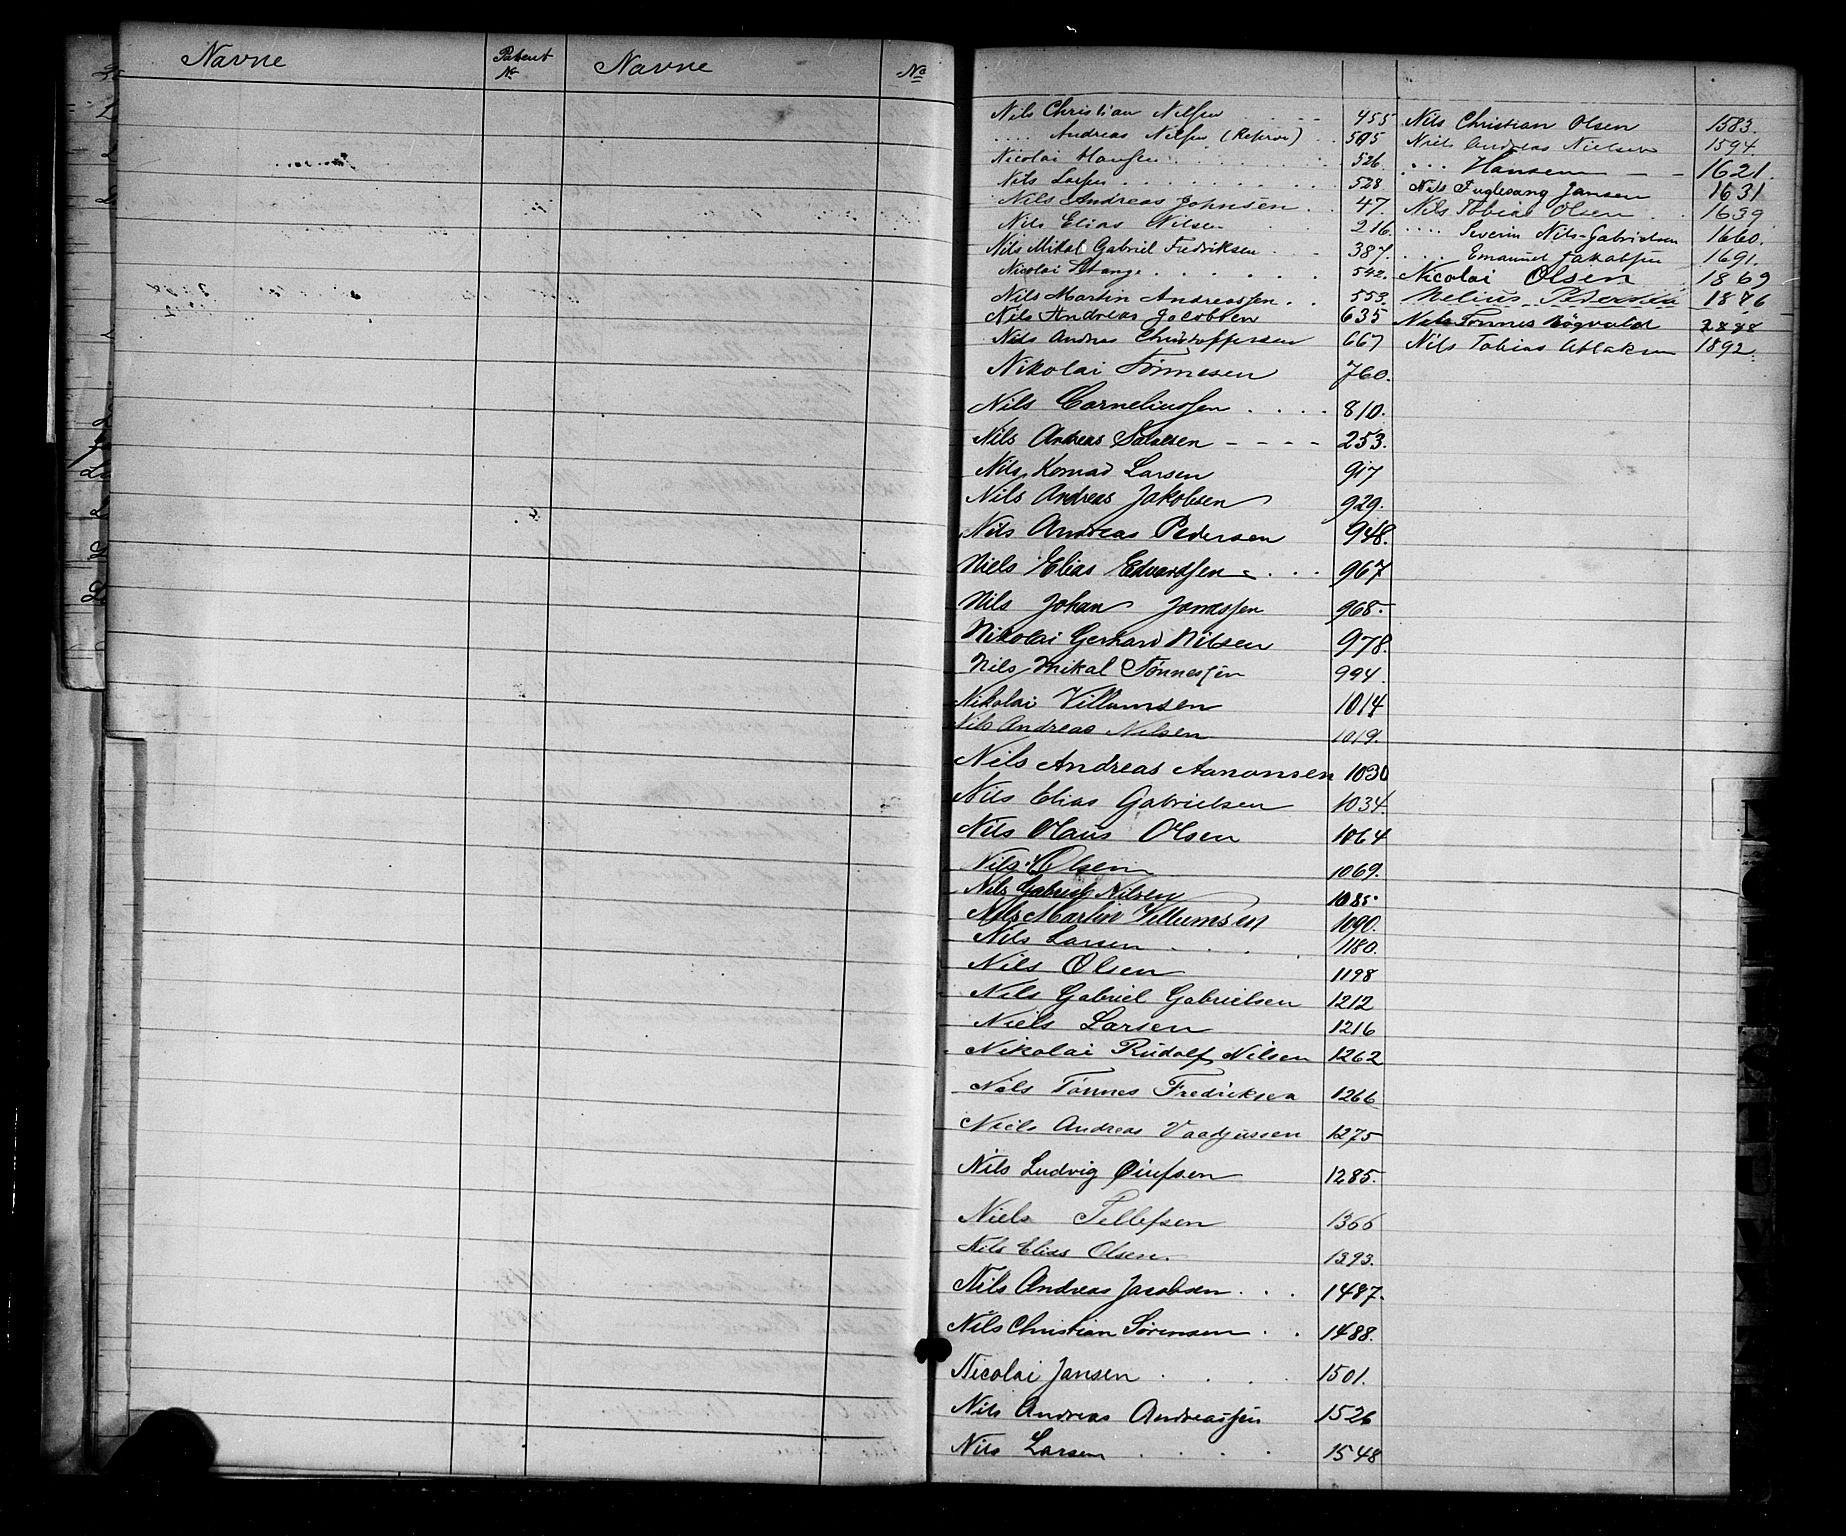 Navne Patent No Navne No
Nils Christian Nilsen 455
.... Andreas Nilsen (Reserve) 505
Nicolai Hansen 526.
Nils Larsen 528.
Nils Andreas Johnsen 47.
Nils Elias Nilsen 216.
Nils Mikal Gabriel Fredriksen 387.
Nicolai Stange 542.
Nils Martin Andreassen 553.
Nils Andreas Jacobsen 635
Nils Andreas Christoffersen 667
Nikolai Tönnesen 760.
Nils Corneliussen 810.
Nils Andreas Salvesen 253.
Nils Konrad Larsen 917
Nils Andreas Jakobsen 929.
Nils Andreas Pedersen 948.
Niels Elias Edvardsen 967
Nils Johan 968.
Nikolai Gerhard Nilsen 978.
Nils Mikal Tönnessen 994.
Nikolai Villumsen 1014
Nils Andreas Nilsen 1019.
Nils Andreas Aanonsen 1030
Nils Elias Gabrielsen 1034.
Nils Olaus Olsen 1064
Nils Olsen 1069.
Nils Gabriel Nilsen 1085.
Nils Martin Villumsen 1090.
Nils Larsen 1180.
Nils Olsen 1198
Nils Gabriel Gabrielsen 1212
Niels Larsen 1216
Nikolai Rudolf Nilsen 1262
Nils Tönnes Fredriksen 1266
Niels Andreas 1275
Nils Ludvig 1285.
Niels Tellefsen 1366
Nils Elias Olsen. 1393.
Nils Andreas Jacobsen 1487.
Nils Christian Sörensen 1488.
Nicolai Jansen 1501.
Nils Andreas Andreassen 1526
Nils Larsen 1548
Nils Christian Olsen 1583.
Niels Andreas Nielsen 1594.
.... Hansen 1621.
Nils Fuglesang Jansen 1631
Nils Tobias Olsen 1639
.... Severin Nils-Gabrielsen 1660.
.... Emanuel Jakobsen 1691.
Nicolai Olsen 1869
Nelius Pedersen 1876
Nils Tönnes
Nils Tobias 1892.